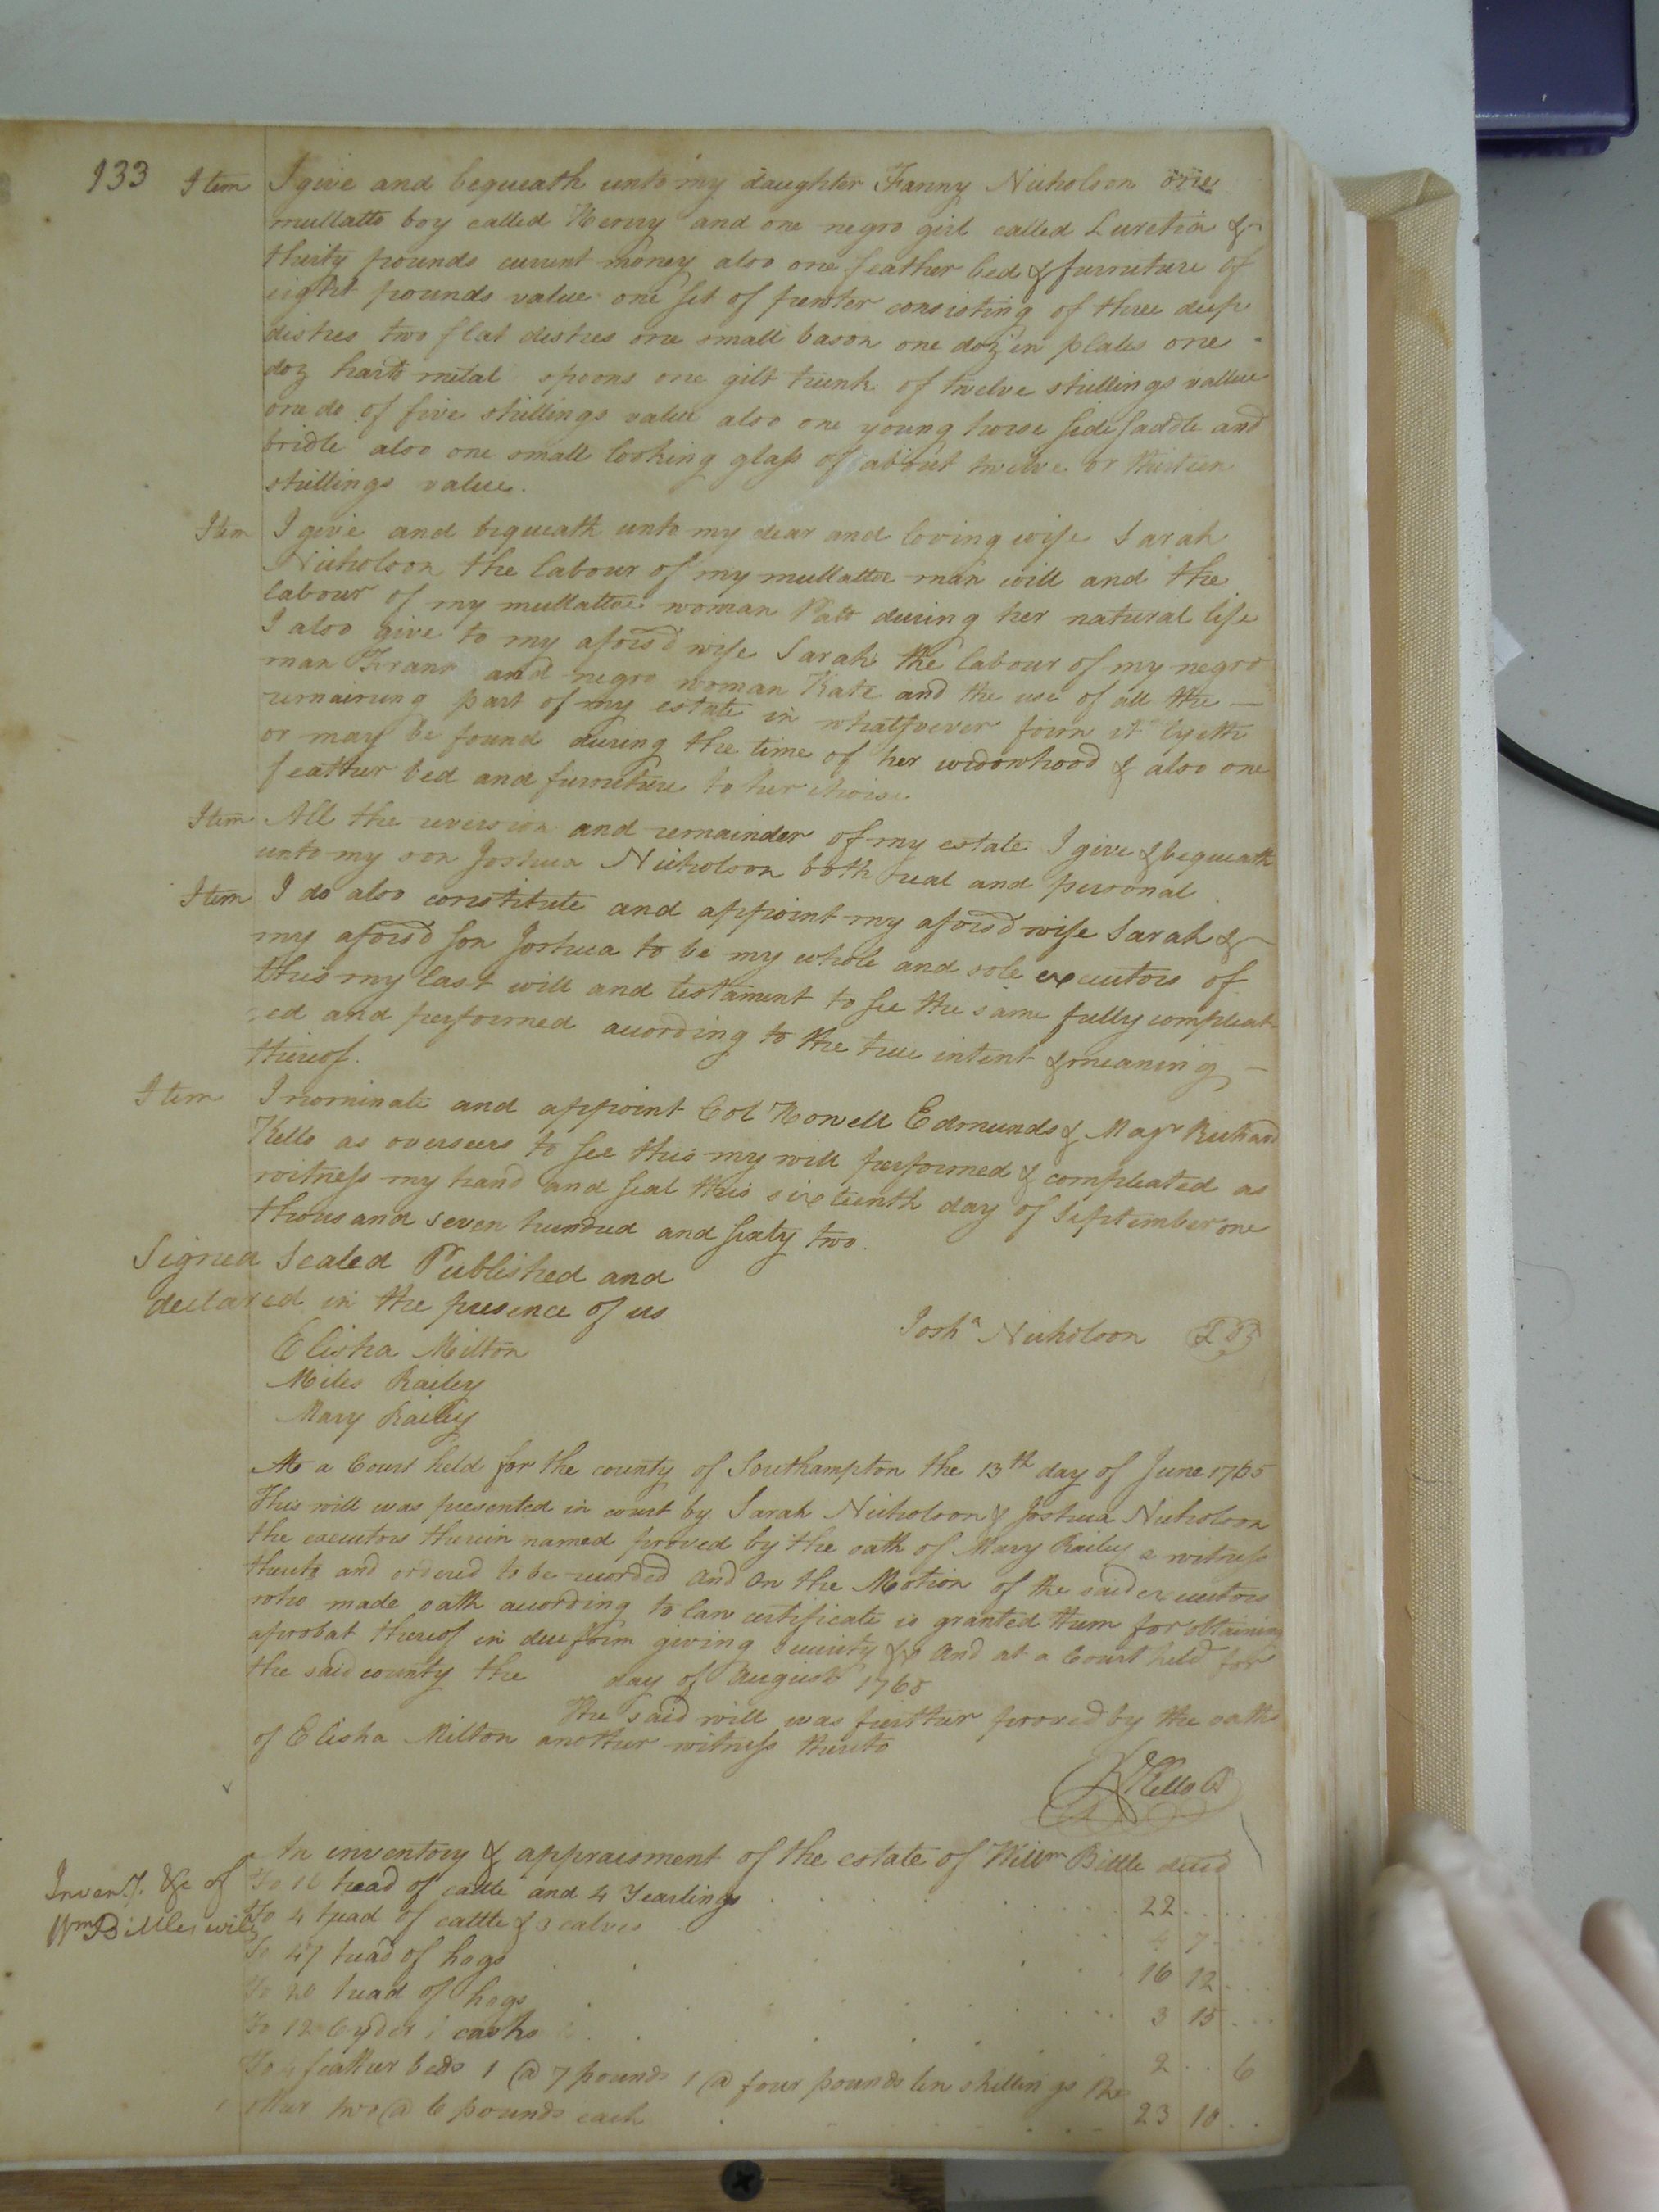 133
Item I give and bequeath unto my daughter Fanny Nicholson one
mullatto boy called Henry and one negro girl called Luretia &
thirty pounds current money also one feather bed & furniture of
eight pounds value one set of pewter consisting of three deep
dishes two flat dishes one small bason one doz'en plates one
doz hard mital spoons one gilt trunk of twelve shillings vallue
one do of five shillings value also one young horse side saddle and
bridle also one small looking glass of about twelve or thirteen
shillings value.
Item I give and bequeath unto my dear and loving wife Sarah
Nicholson the labour of my mullattoe man will and the
labour of my mullattoe woman Patt during her natural life
I also give to my aforsd wife Sarah the labour of my negro
man Frank and negro woman Kate and the use of all the —
remaining part of my estate in whatsoever form it lyeth
or may be found during the time of her widowhood & also one
feather bed and furniture to her choise
Item All the reversion and remainder of my estate I give & bequeath
unto my son Joshua Nicholson both real and personal
Item I do also constitute and appoint my aforsd wife Sarah &
my aforsd son Joshua to be my whole and sole executors of
this my last will and testament to see the same fully compleat
ed and performed according to the true intent & meaning —
thereof.
Item I nominate and appoint Col Howell Edmunds & Majr Richard
Kello as overseers to see this my will performed & compleated as
witness my hand and seal this sixteenth day of September one
thousand seven hundred and sixty two.
Signed Sealed Published and
declared in the presence of us
Josha Nicholson LS
Elisha Milton
Miles Railey
Mary Railey
At a Court held for the county of Southampton the 13th day of June 1765
This will was presented in court by Sarah Nicholson & Joshua Nicholson
the executors therein named proved by the oath of Mary Railey a witness
thereto and ordered to be recorded and on the Motion of the said executors
who made oath according to law certificate is granted them for obtaining
aprobat thereof in due form giving security &c And at a Court held for
the said county the day of August 1765
The said will was further proved by the oath
of Elisha Milton another witness thereto
R Kello Cl
Inventy. &c of
Wm Bittles will
An inventory & appraisment of the estate of Willm Bittle decd
To 16 head of cattle and 4 Yearlings 22
To 4 head of cattle & 3 calves 4 7
To 47 head of hogs 16 12
To 20 head of hogs 3 15
To 12 Cyder casks 2 6
To 4 feather beds 1 @ 7 pounds 1 @ four pounds ten shillings the
other two @ 6 pounds each 23 10